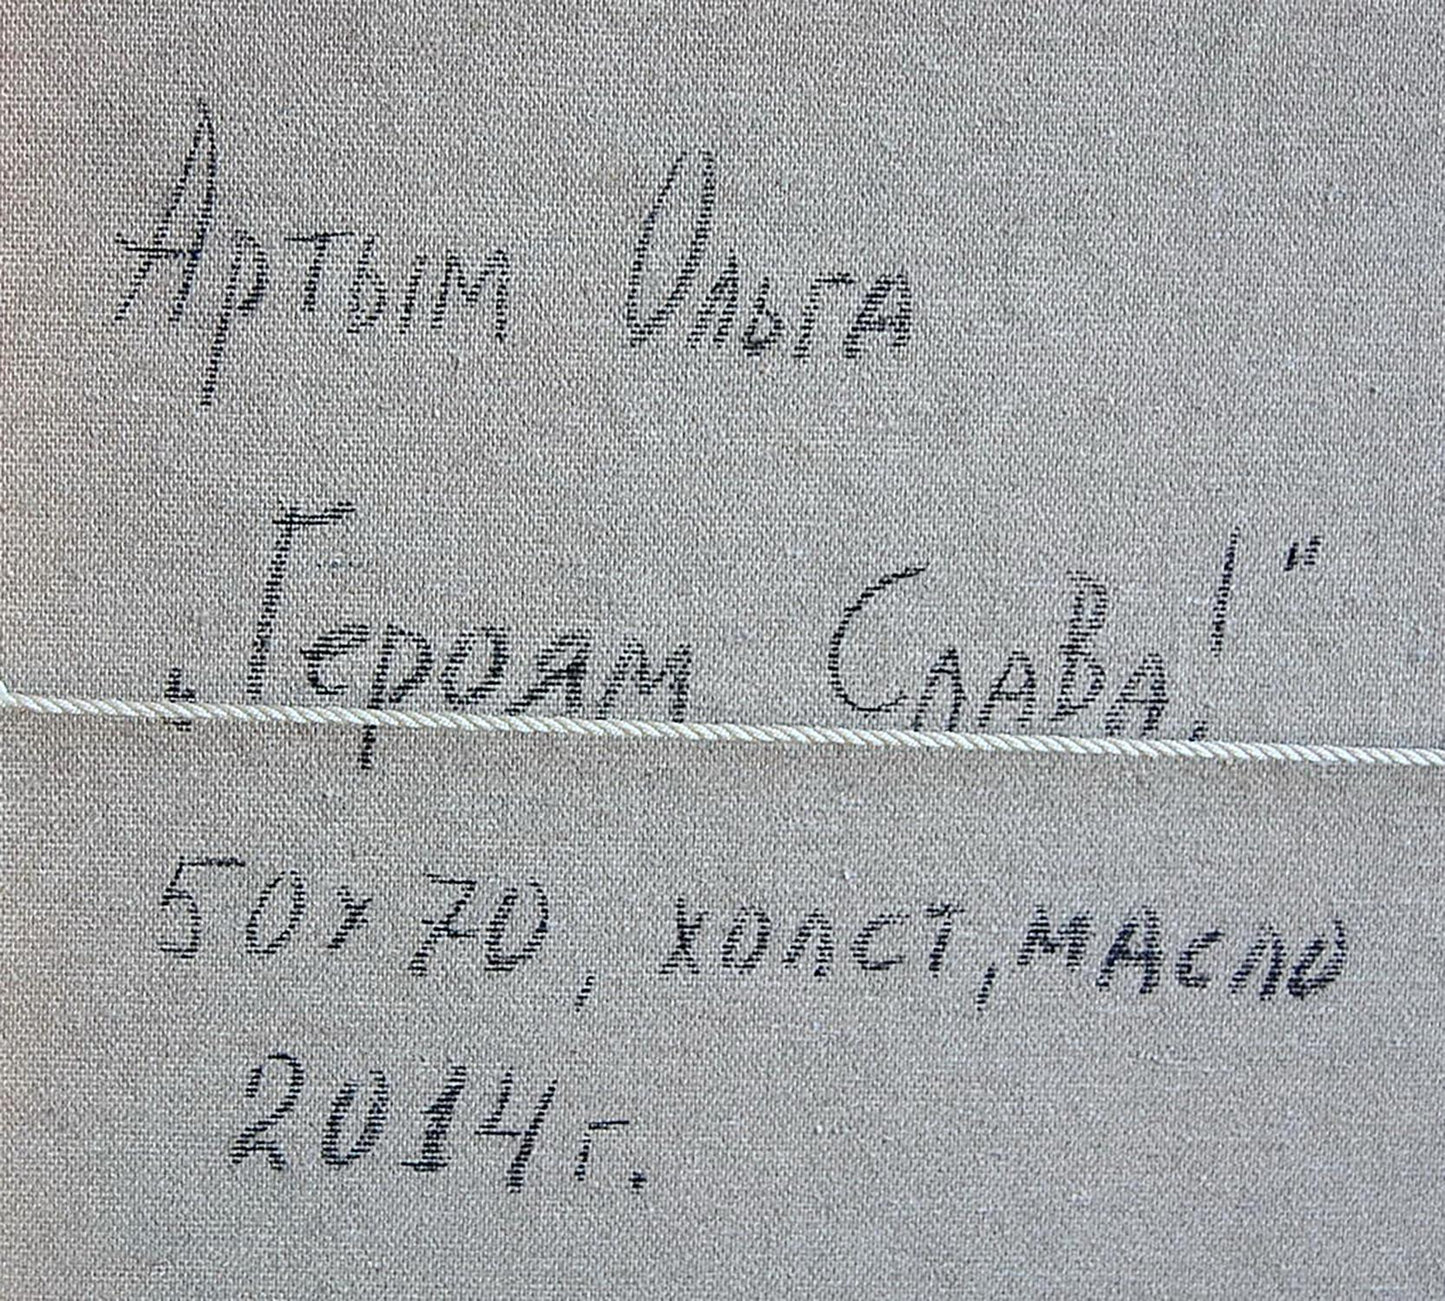 Артым Ольга
„Героям Слава!"
50х70, холст, масло
2014г.